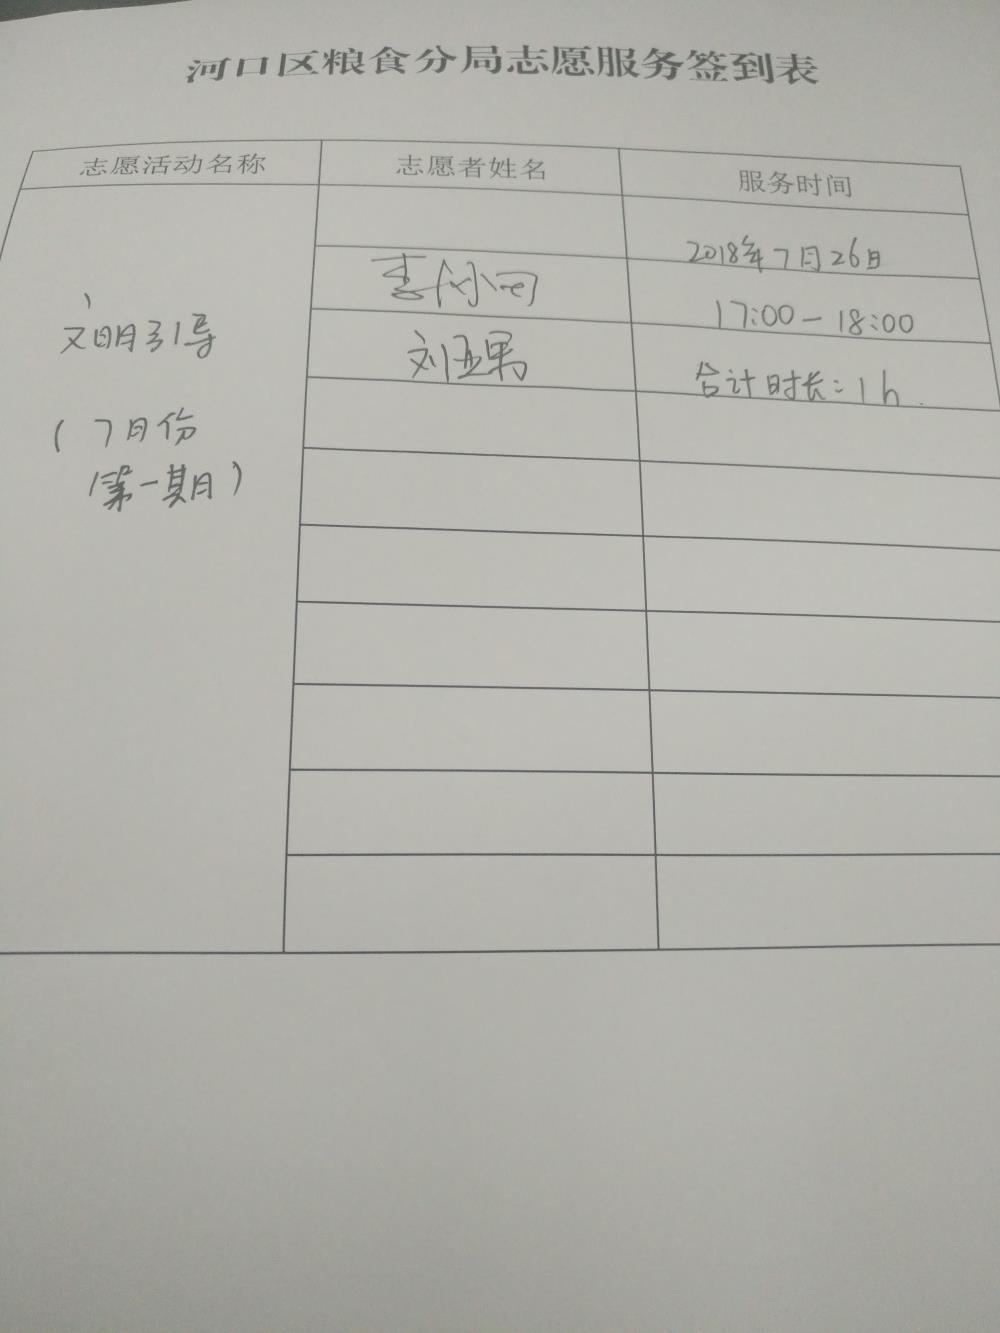 河口区粮食分局志愿服务签到表
志愿活动名称 志愿者姓名 服务时间
2018年7月26日
17:00－18:00
文明引导 刘亚男 合计时长：1h.
（7月份
第一期）